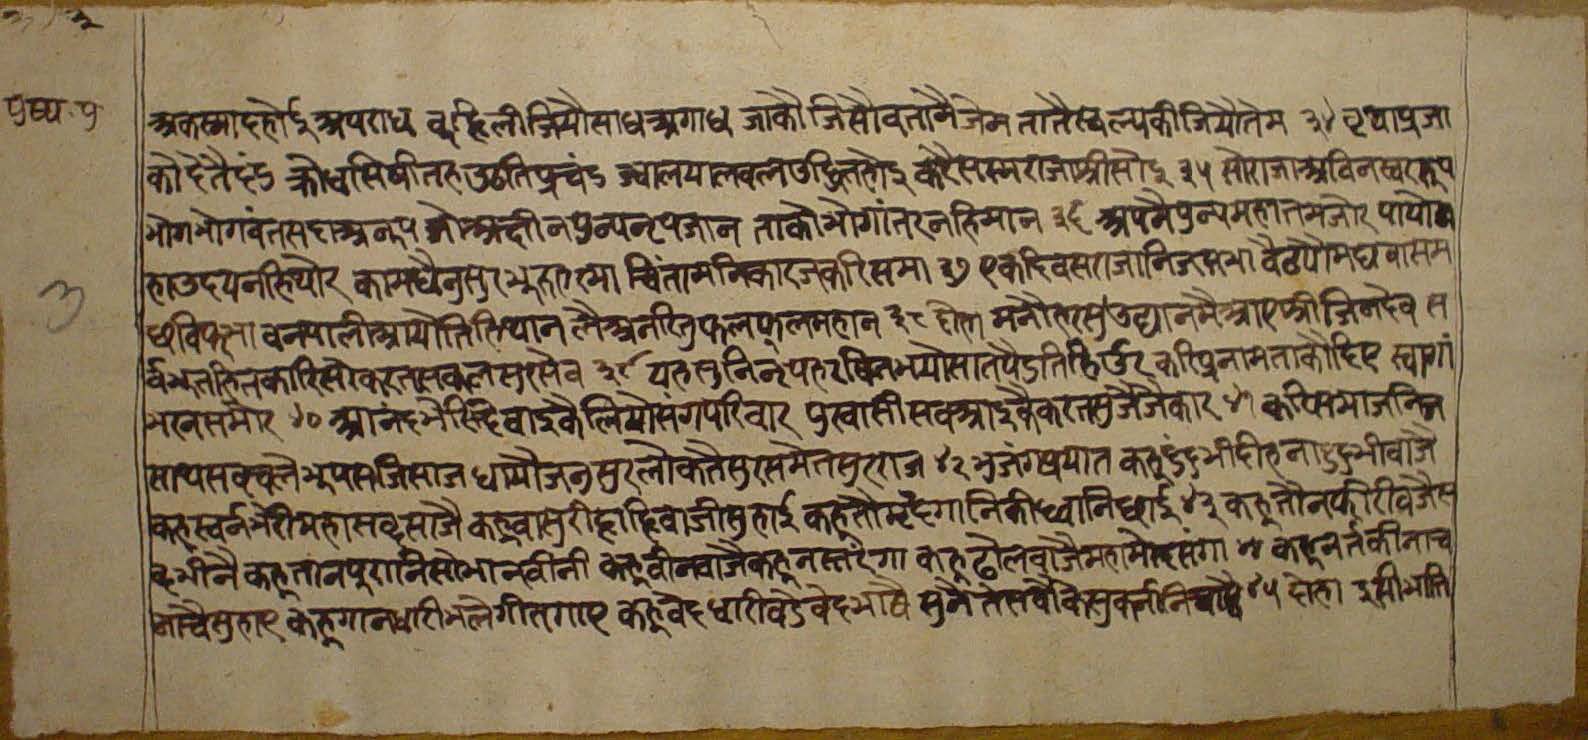 पुण्य. ५
३
अकस्माद होई अपराध वृहि लीजियौ साध अगाध जाकौ जिसौ वतानै जेम तातै स्वल्प कीजियौ तेम ३४ वृथा प्रजा
कौ देतै दंड क्रोध सिषी तह उठति प्रचंड ज्वालयालवत्न उद्दित होइ करै सस्म राजा श्री सोइ ३५ सो राजा अविनस्वर रूप
भोग भोगवंत सदा अनूप जो अहीन पुन्य नृप जान ताकौ भोगांतर नहि मान ३६ अपनै पुन्य महातम जोर पायो
हा उदय नहि थोर कामधैनु सुर भूरुह रमा चिंतामनि कारज करि समा ३७ एक दिवस राजा निज सभा वैठयौ मघवा सम
वनपाली आयौ तिहि थान लै अनरितु फल फूल महान ३८ दोहा मनोहर सु उद्यान मै आए श्री जिनदेव स
र्वभूत हित कारि सो करता सकल सुर सेव ३९ यह सुनि नृप हरषित भयौ सात पैड तिहि उर करि प्रनाम ताकौ दिए स्वांगा
भरन समोर ४० आनंद भेरि दिवाइ कै लियौ संग परिवार पुरवासी सव आइकै करत सु जै जै कार ४१ करि सभाजनि
साथ सव चलै भूप सजि साज धायौ जनु सुरलोक तै सुर समेत सुरराज ४२ भुजंगप्रयात कहू दुंदुभी दीह ना दुंदुभी वाजै
कहू स्वर्न भेरी महा सव्द साजै कहू वासुरी हाहि वाजी सुहाई कहू तौ मृदंगानि की ध्वानि छाई ४३ कहू तौ नफीरी वजै स
कहू तानपुरानि सोभा नवीनी कहू वीन वाजै कहू नस्तरंगा कहू ढोल वाजै महा मोद संगा ४४ कहू नर्तकी नाच
नाचै सुहाए कहू गानधारी भलै गीत गाए कहू वेदधारी वडे वेद भाषै सुनै ते सवै के सु कर्ना ४५ दोहा इसी भाति